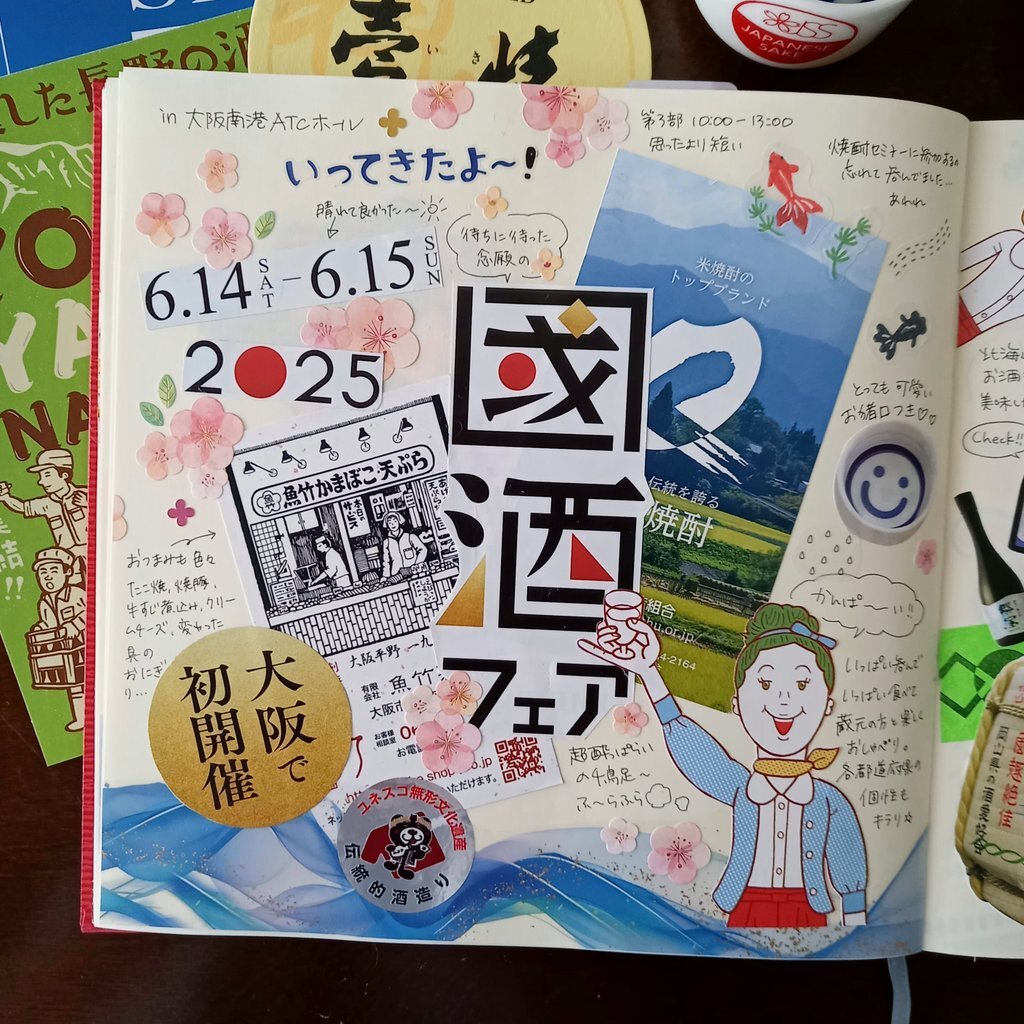 した長野の酒
壱岐
いき
JAPANESE
SAKE
in 大阪南港ATCホール
いってきたよ～!
第3部 10:00-13:00
思ったより短い
焼酎セミナーに参加するの
忘れて呑んでました…
あわれ
晴れて良かった～
6.14 SAT - 6.15 SUN
2025
待ちに待った
念願の
國酒フェア
米焼酎の
トップブランド
伝統を誇る
焼酎
組合
nu.or.jp/
4-2164
とっても可愛い
お猪口つき♡♡
魚竹かまぼこ天ぷら
おつまみも色々
たこ焼、焼豚、
牛すじ煮込み、クリー
ムチーズ、変わった
具の
おにぎ
り…
大阪平野
有限会社 魚竹
大阪市
お客様相談室
お電
shop
いただけます。
大阪で
初開催
ユネスコ無形文化遺産
伝統的酒造り
超酔っぱらい
の千鳥足～
ふ～らふら
かんぱ～い!!
いっぱい呑んで
いっぱい食べて
蔵元の方と楽しく
おしゃべり。
各都道府県の
個性も
キラリ☆
北海
お酒
美味し
Check!!